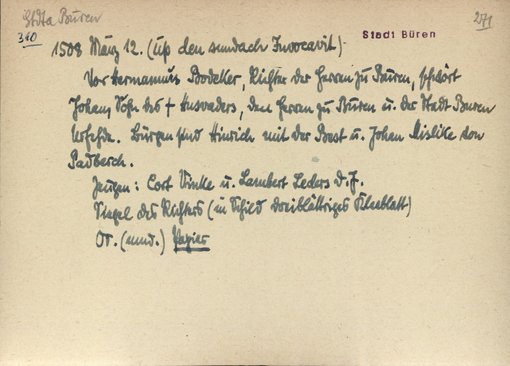 Stdta Büren
310
Stadt Büren
271
1508 März 12. (up den sundach Invocavit)
Vor Hermannus Bodeker, Richter der Herren zu Büren, schwört
Johan, Sohn des † Husveders, den Herren zu Büren u. der Stadt Büren
Urfehde. Bürgen sind Hinrich mit der Bost u. Johan Mislike von
Padberch.
Zeugen: Cort Vinke u. Lambert Leders d. J.
Siegel des Richters (in Schild dreiblättriges Kleeblatt)
Or. (mnd.) Papier